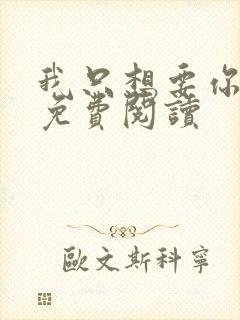 我只想要你
免費閱讀
歐文斯科寧